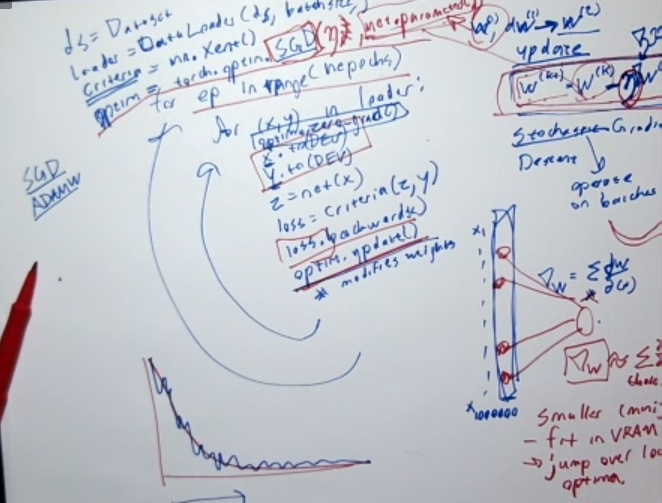 ds = Dataset
loader = DataLoader(ds, batchsize,
criteria = nn.Xent()
optim = torch.optim.SGD(η, net.parameters
for ep in range(nepochs)
for (x,y) in loader:
optim.zero-grad()
x.to(DEV)
y.to(DEV)
z = net(x)
loss = criteria(z, y)
loss.backwards()
optim.update()
* modifies weights
SGD
ADAMW
update
Stochastic Gradi
Descent
operate
on batches
x₁
∇w = Σ
x₁₀₀₀₀₀₀
∇w ≈ Σ
Smaller (mini
- fit in VRAM
→ jump over loc
optima